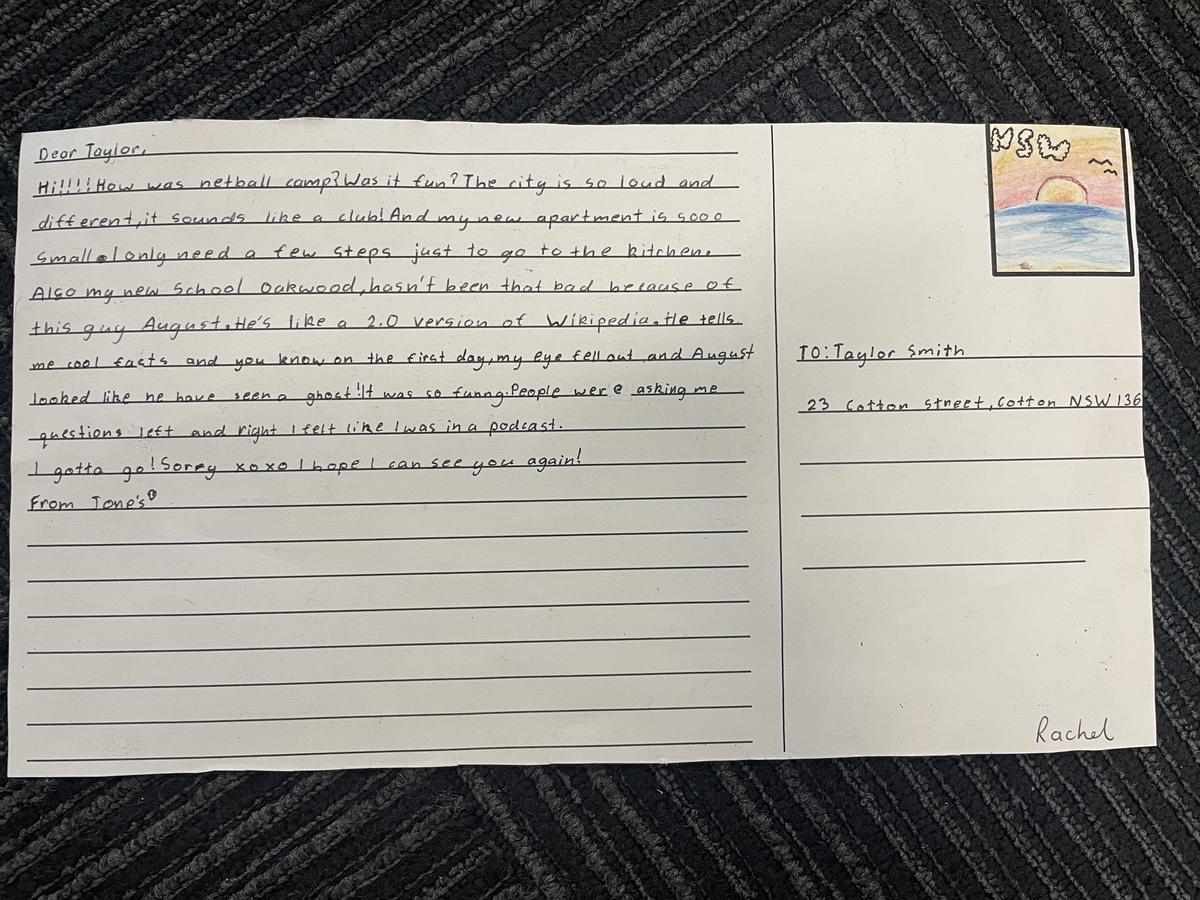 Dear Taylor,
Hi!!!!How was netball camp?Was it fun?The city is so loud and
different,it sounds like a club!And my new apartment is sooo
small.I only need a few steps just to go to the kitchen.
Also my new school Oakwood,hasn't been that bad because of
this guy August.He's like a 2.0 version of Wikipedia.He tells
me cool facts and you know on the first day,my eye fell out and August
looked like he have seen a ghost!It was so funny.People were asking me
questions left and right I felt like I was in a podcast.
I gotta go!Sorry xoxo I hope I can see you again!
From Jone's
NSW
TO:Taylor Smith
23 Cotton street,Cotton NSW 136
Rachel